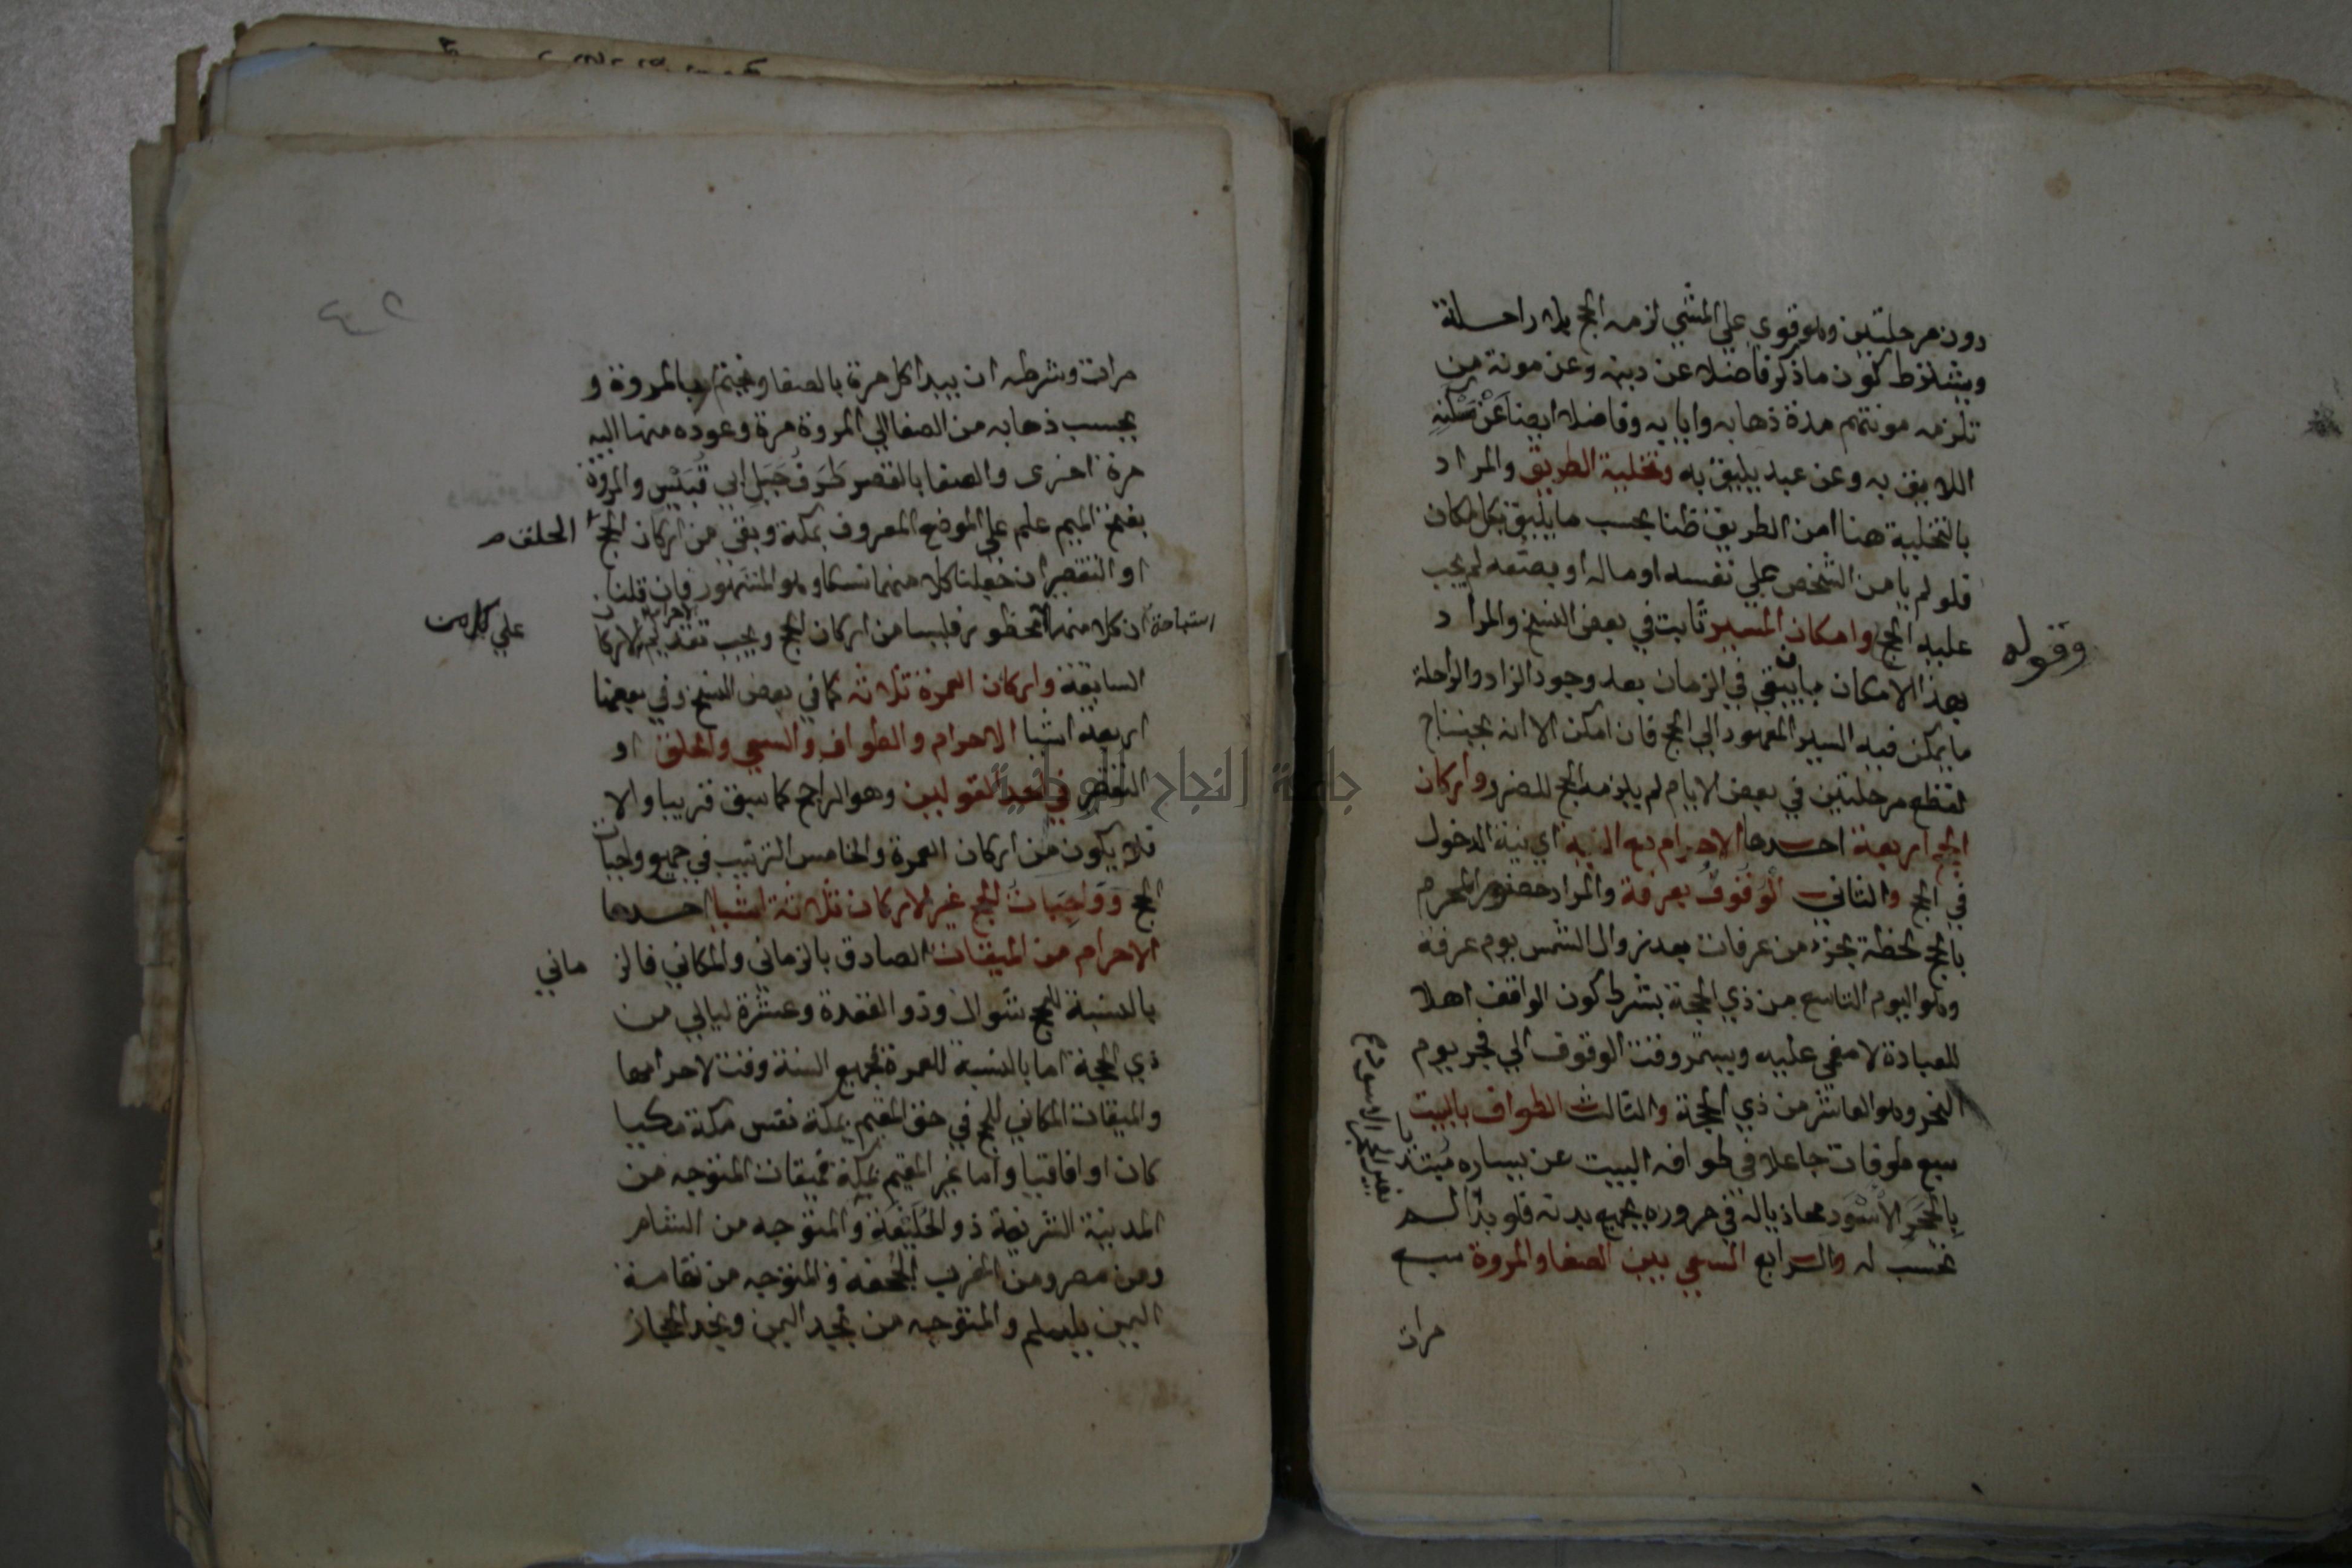 دون مرحلتين وهو قوي علي المشي لزمه الحج بلا راحلة
ويشترط كون ما ذكر فاضلا عن دينه وعن مونة من
تلزمه مونتهم مدة ذهابه وايابه وفاضلا ايضا عَنْ مَسْكَنِه
اللايق به وعن عبد يليق به وتخلية الطريق والمراد
بالتخلية هنا امن الطريق ظنا بحسب ما يليق بكل مكان
فلو لم يامن الشخص علي نفسه او ماله او بضعه لم يجب
عليه الحج وامكان المسير ثابت في بعض النسخ والمراد
وقوله
بهذا الامكان ان يبقي في الزمان بعد وجود الزاد والراحلة
ما يمكن فيه السير المعهود الي الحج فان امكن الا انه يحتاج
لقطع مرحلتين في بعض الايام لم يلزمه الحج للضرر واركان
الحج اربعة احدها الاحرام مع النية اي نية الدخول
في الحج والثاني الْوُقُوفُ بعرفة والمراد حضور المحرم
بالحج لحظة بجزء من عرفات بعد زوال الشمس يوم عرفة
وهو اليوم التاسع من ذي الحجة بشرط كون الواقف اهلا
للعبادة لا مغمي عليه ويستمر وقت الوقوف الي فجر يوم
النحر وهو العاشر من ذي الحجة والثالث الطواف بالبيت
سبع طوفات جاعلا في طوافه البيت عن يساره مبتديا
بِالْحَجَرِ الْاَسْوَدِ محاذيا له في مروره بجميع بدنه فلو بدا لم
بغير الحجر الاسود
يحسب له والرابع السعي بين الصفا والمروة سبع
مرات
مرات وشرطه ان يبدا كل مرة بالصفا ويختم بالمروة و
يحسب ذهابه من الصفا الي المروة مرة وعوده منها اليه
مرة اخري والصفا بالقصر طَرَف جَبَلِ ابي قُبَيْسٍ والمروة
بفتح الميم علم علي الموضع المعروف بمكة وبقي من اركان الحج الحلق
او التقصير ان جعلنا كلا منهما نسكا وهو المشهور فان قلنا
ان كلا منهما استباحة محظور فليسا من اركان الحج ويجب تقديم الاحرام علي كل من الاركان
السابقة واركان العمرة ثلاثة كما في بعض النسخ وفي بعضها
اربعة اشيا الاحرام والطواف والسعي والحلق او
التقصير في احد القولين وهو الراجح كما سبق قريبا والا
فلا يكون من اركان العمرة والخامس الترتيب في جميع واجبات
الحج وَوَاجِبَاتُ الحج غير الاركان ثلاثة اشيا احدها
الاحرام من الميقات الصادق بالزماني والمكاني فالزماني
بالنسبة للحج شوال وذو القعدة وعشرة ليالي من
ذي الحجة اما بالنسبة للعمرة فجميع السنة وقت لاحرامها
والميقات المكاني للحج في حق المقيم بمكة نفس مكة مكيا
كان او افاقيا واما غير المقيم بمكة فميقات المتوجه من
المدينة الشريفة ذو الحُلَيْفَة والمتوجه من الشام
ومن مصر ومن المغرب الجحفة والمتوجه من تهامة
اليمن يلملم والمتوجه من نجد اليمن ونجد الحجاز
جامعة النجاح الوطنية